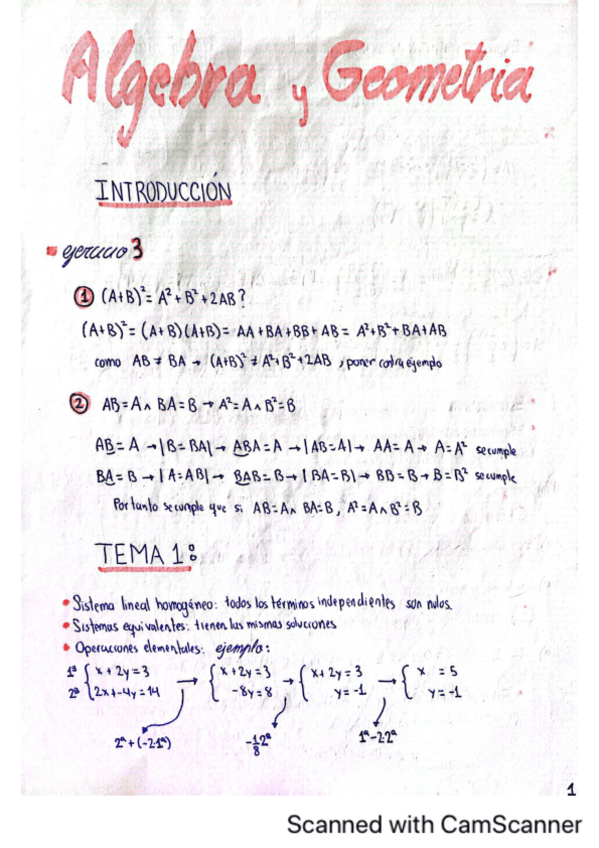 Algebra y Geometria
INTRODUCCIÓN
ejercicio 3
① (A+B)² = A² + B² + 2AB?
(A+B)² = (A+B)(A+B) = AA + BA + BB + AB = A² + B² + BA + AB
como AB ≠ BA → (A+B)² ≠ A² + B² + 2AB , poner contraejemplo
② AB = A ∧ BA = B → A² = A ∧ B² = B
AB = A → |B = BA| → ABA = A → |AB = A| → AA = A → A = A² se cumple
BA = B → |A = AB| → BAB = B → |BA = B| → BB = B → B = B² se cumple
Por tanto se cumple que si AB = A ∧ BA = B, A² = A ∧ B² = B
TEMA 1:
• Sistema lineal homogéneo: todos los términos independientes son nulos.
• Sistemas equivalentes: tienen las mismas soluciones
• Operaciones elementales: ejemplo:
1ª { x + 2y = 3 → { x + 2y = 3 → { x + 2y = 3 → { x = 5
2ª { 2x + -4y = 14 { -8y = 8 { y = -1 { y = -1
2ª + (-2·1ª) -1/8 2ª 1ª - 2·2ª
1
Scanned with CamScanner